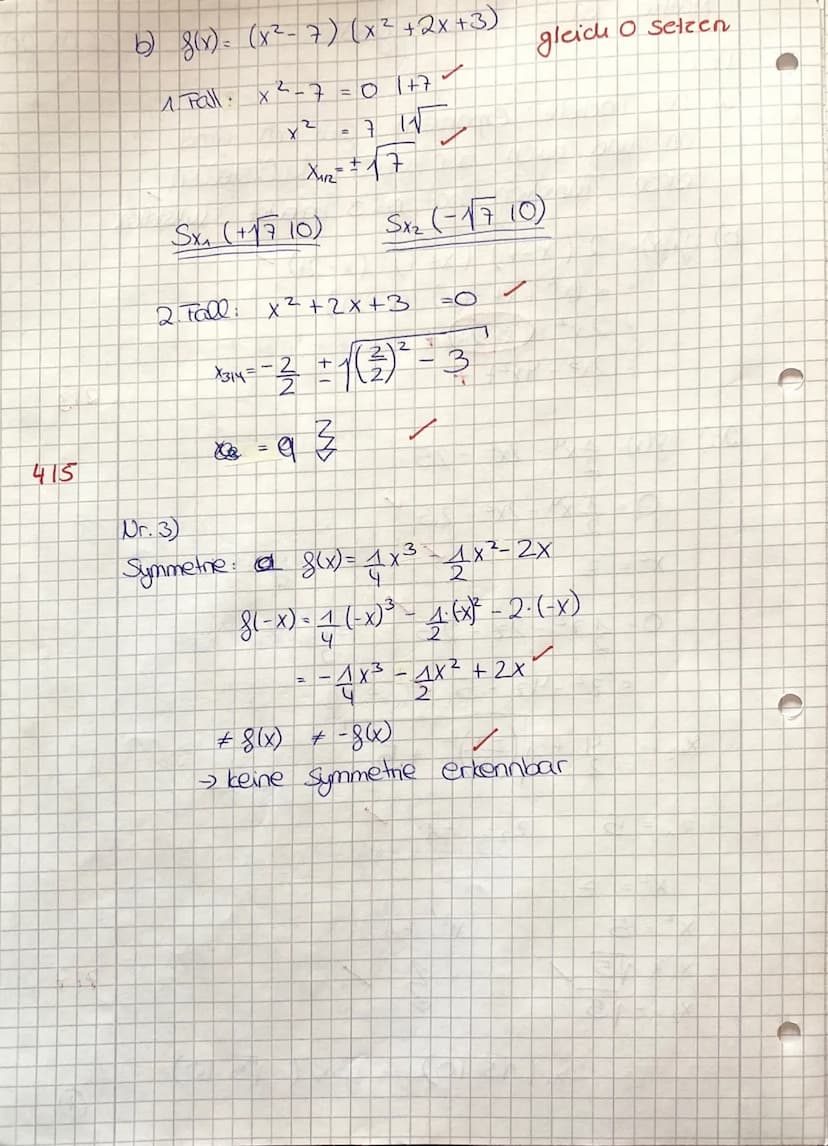 b) f(x) = (x² - 7) (x² + 2x + 3) gleich 0 setzen
1 Fall: x² - 7 = 0 | +7 ✓
x² = 7 | √
x₁/₂ = ± √7 ✓
Sx₁ (+√7 | 0) Sx₂ (-√7 | 0)
2. Fall: x² + 2x + 3 = 0 ✓
x₃/₄ = - 2/2 ± √((2/2)² - 3)
= ✓
4 | 5
Nr. 3)
Symmetrie: f(x) = 1/4 x³ - 1/2 x² - 2x
f(-x) = 1/4 (-x)³ - 1/2 · (-x)² - 2 · (-x)
= - 1/4 x³ - 1/2 x² + 2x ✓
≠ f(x) ≠ -f(x) ✓
→ keine Symmetrie erkennbar